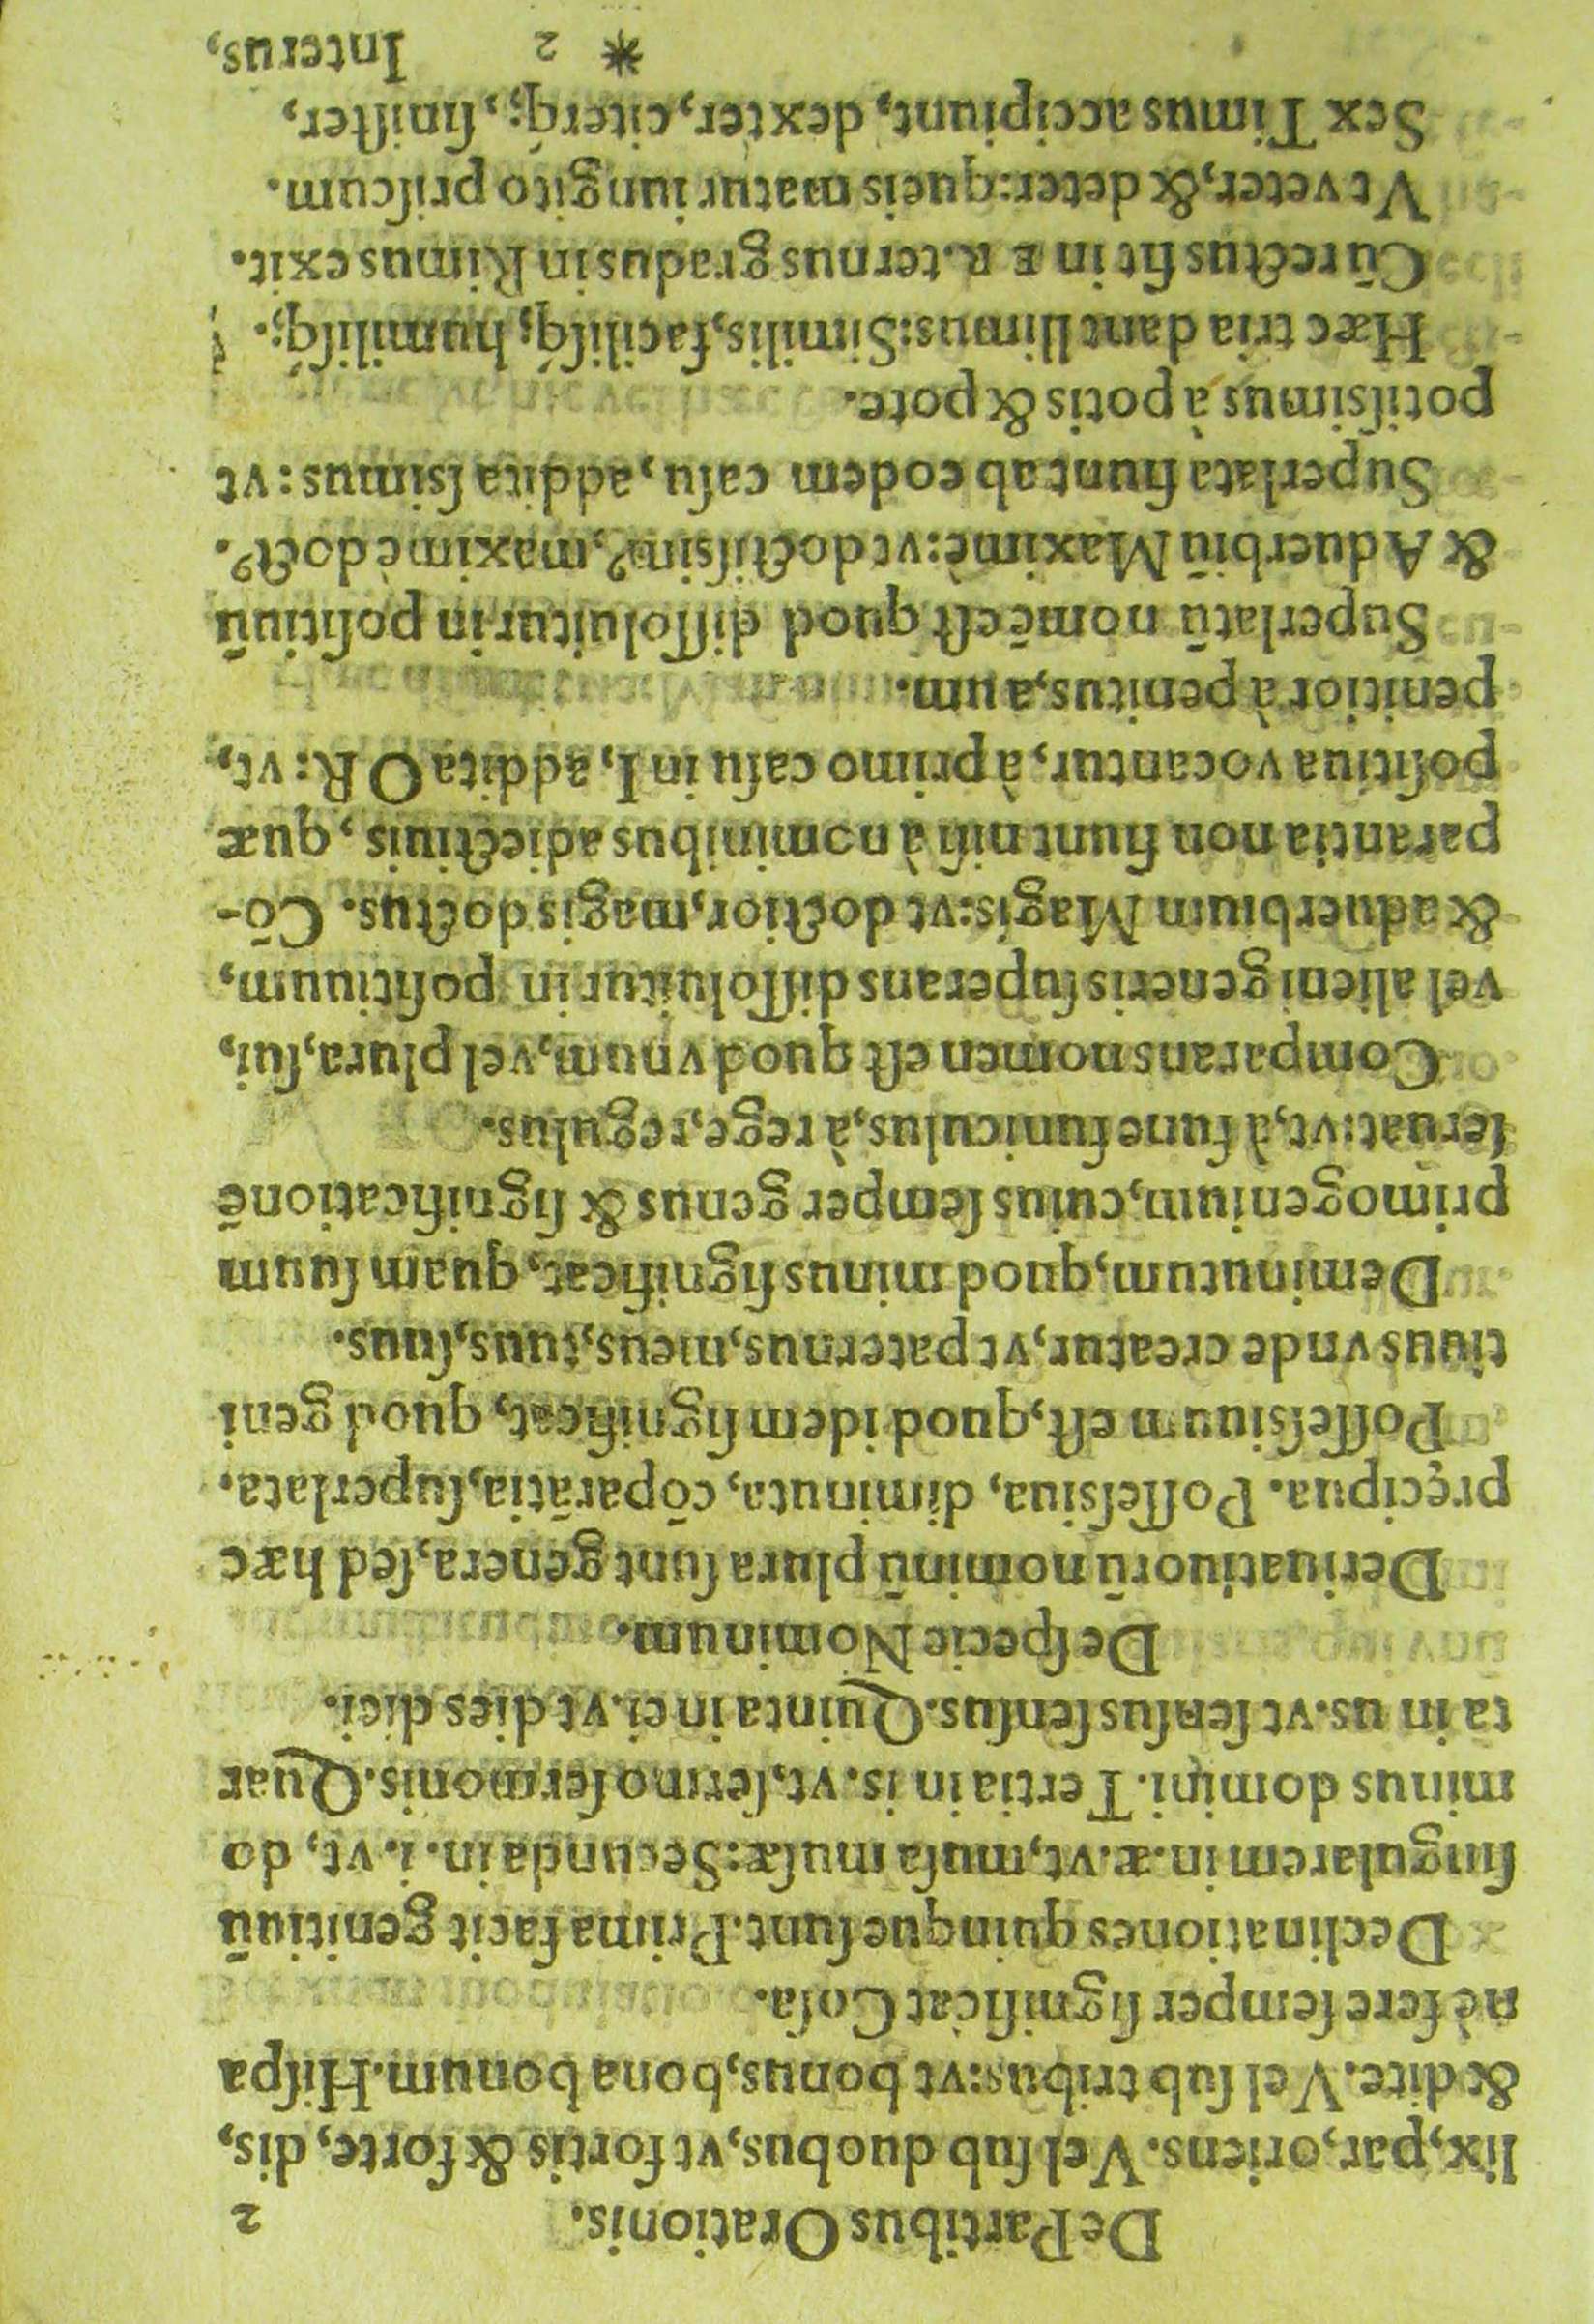 De Partibus Orationis. 2
lix, par, oriens. Vel ſub duobus, vt fortis & forte, dis,
& dite. Vel ſub tribus: vt bonus, bona bonum. Hiſpa
nè fere ſemper ſignificat Coſa.
Declinationes quinque ſunt. Prima facit genitiuū
ſingularem in. æ. vt, muſa muſæ: Secunda in. i. vt, do
minus domini. Tertia in is. vt, ſermo ſermonis. Quar
ta in us. vt ſenſus ſenſus. Quinta in ei. vt dies diei.
De ſpecie Nominum.
Deriuatiuorū nominū plura ſunt genera, ſed hæc
pręcipua. Poſſeſsiua, diminuta, cōparātia, ſuperlata.
Poſſeſsiuum eſt, quod idem ſignificat, quod geni
tiuus vnde creatur, vt paternus, meus, tuus, ſuus.
Deminutum, quod minus ſignificat, quam ſuum
primogenium, cuius ſemper genus & ſignificationē
ſeruat: vt, à fune funiculus, à rege, regulus.
Comparans nomen eſt quod vnum, vel plura, ſui,
vel alieni generis ſuperans diſſoluitur in poſitiuum,
& aduerbium Magis: vt doctior, magis doctus. Cō-
parantia non fiunt niſi à nominibus adiectiuis, quæ
poſitiua vocantur, à primo caſu in I, addita OR: vt,
penitior à penitus, a um.
Superlatū nomē eſt quod diſſoluitur in poſitiuū
& Aduerbiū Maximè: vt doctiſsimꝰ, maximè doctꝰ.
Superlata fiunt ab eodem caſu, addita ſsimus: vt
potiſsimus à potis & pote.
Hæc tria dant llimus: Similis, faciliſq́;, humiliſq́;.
Cū rectus ſit in E R. ternus gradus in Rimus exit.
Vt veter, & deter: queis matur iungito priſcum.
Sex Timus accipiunt, dexter, citerq́;, ſiniſter,
* 2 Interus,